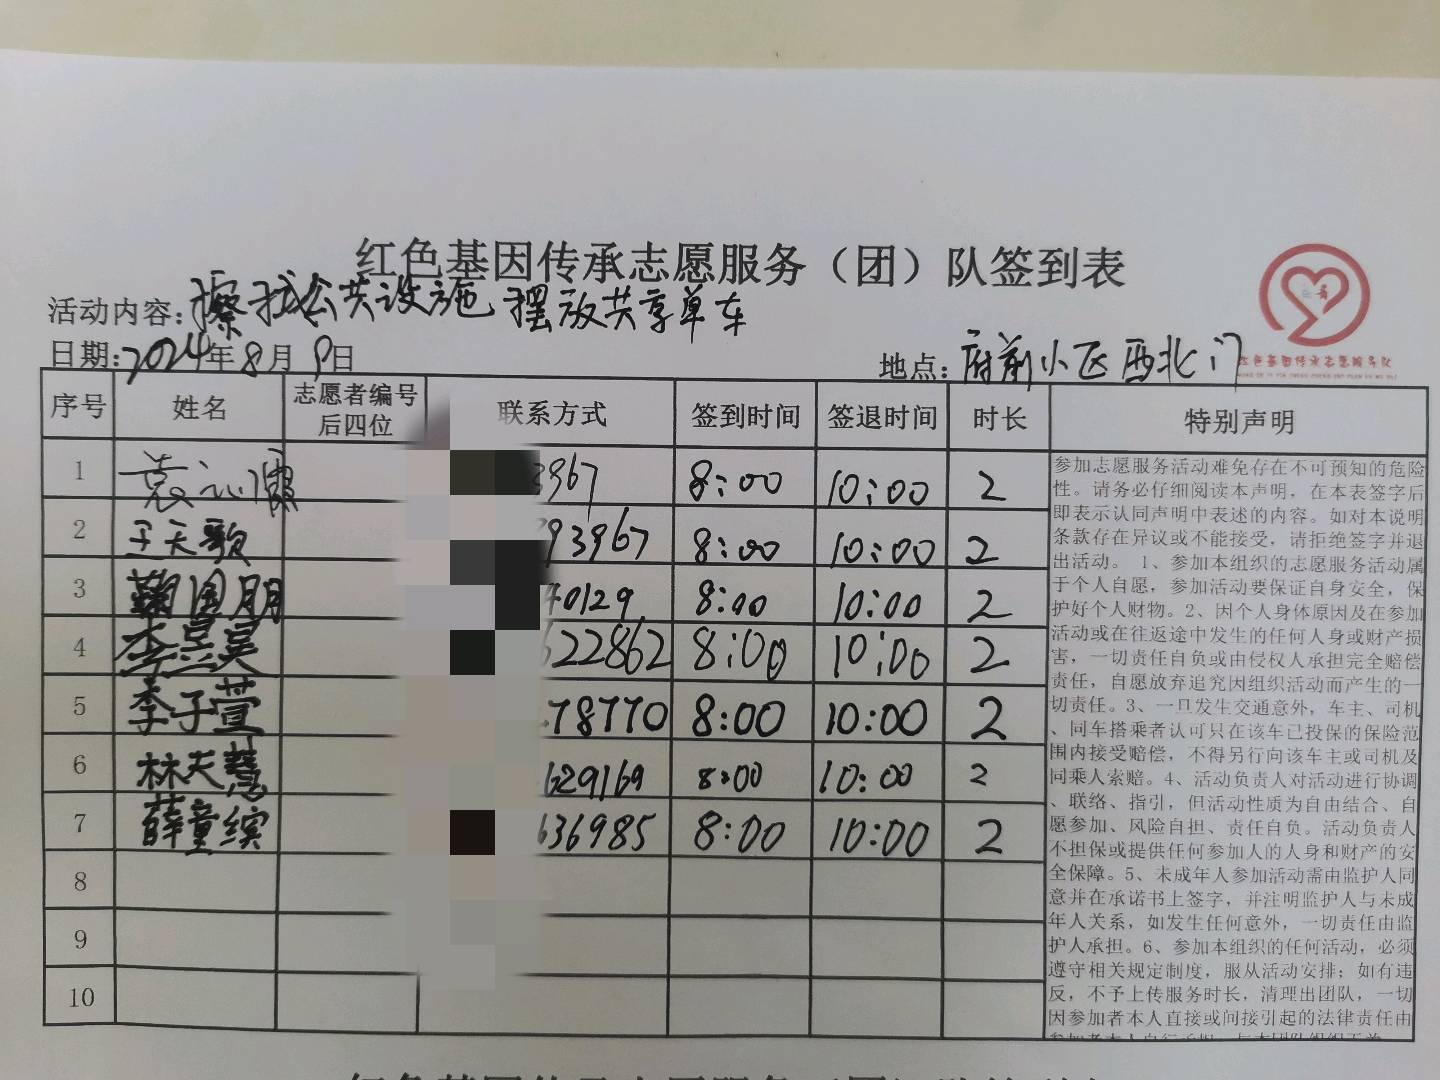 红色基因传承志愿服务（团）队签到表
活动内容：擦拭公共设施 摆放共享单车
日期：2024年8月9日
地点：府前小区西北门
红色基因传承志愿服务队
序号 姓名 志愿者编号后四位 联系方式 签到时间 签退时间 时长 特别声明
1 袁沁霈 3967 8:00 10:00 2
2 于天歌 93967 8:00 10:00 2
3 鞠国朋 40129 8:00 10:00 2
4 李昱昊 622862 8:00 10:00 2
5 李子萱 78770 8:00 10:00 2
6 林天慧 629169 8:00 10:00 2
7 薛童缤 636985 8:00 10:00 2
8
9
10
参加志愿服务活动难免存在不可预知的危险
性。请务必仔细阅读本声明，在本表签字后
即表示认同声明中表述的内容。如对本说明
条款存在异议或不能接受，请拒绝签字并退
出活动。 1、参加本组织的志愿服务活动属
于个人自愿，参加活动要保证自身安全，保
护好个人财物。2、因个人身体原因及在参加
活动或在往返途中发生的任何人身或财产损
害，一切责任自负或由侵权人承担完全赔偿
责任，自愿放弃追究因组织活动而产生的一
切责任。3、一旦发生交通意外，车主、司机
、同车搭乘者认可只在该车已投保的保险范
围内接受赔偿，不得另行向该车主或司机及
同乘人索赔。4、活动负责人对活动进行协调
、联络、指引，但活动性质为自由结合、自
愿参加、风险自担、责任自负。活动负责人
不担保或提供任何参加人的人身和财产的安
全保障。5、未成年人参加活动需由监护人同
意并在承诺书上签字，并注明监护人与未成
年人关系，如发生任何意外，一切责任由监
护人承担。6、参加本组织的任何活动，必须
遵守相关规定制度，服从活动安排；如有违
反，不予上传服务时长，清理出团队，一切
因参加者本人直接或间接引起的法律责任由